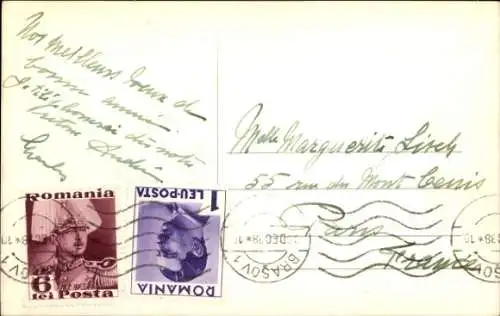 Nos meilleurs voeux de
bonne année
téléphonerai dès notre
Charles
Melle Marguerite Lisch
55 rue du Mont Cenis
Paris
France
Romania
6 lei Posta
1
LEU·POSTA
ROMANIA
BRAȘOV 1
DEC 38
BRAȘOV 1